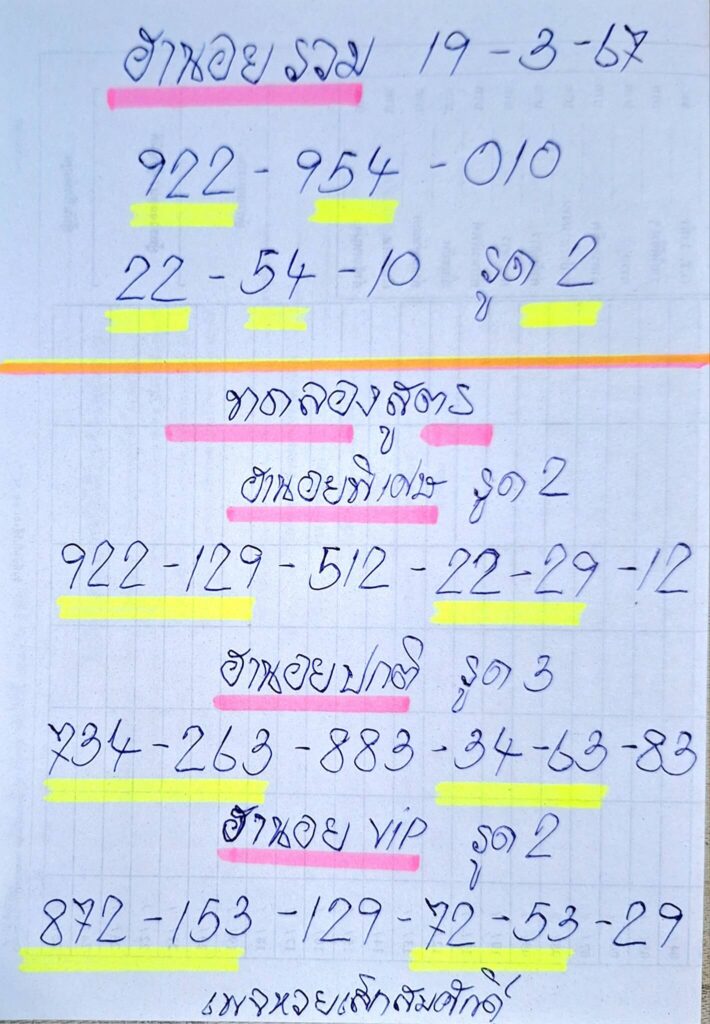 ฮานอย รวม 19-3-67
922 - 954 - 010
22 - 54 - 10 รูด 2
ทดลองสูตร
ฮานอยพิเศษ รูด 2
922 - 129 - 512 - 22 - 29 - 12
ฮานอยปกติ รูด 3
734 - 263 - 883 - 34 - 63 - 83
ฮานอย VIP รูด 2
872 - 153 - 129 - 72 - 53 - 29
เพจหวยเสกสมศักดิ์